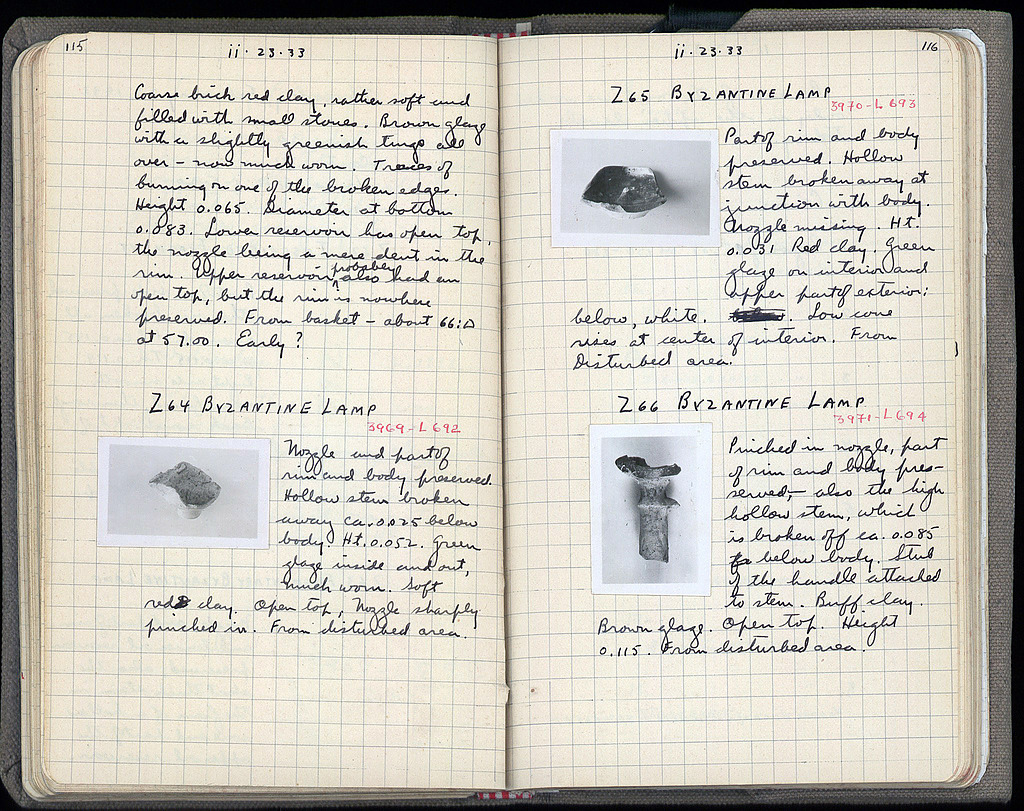 115
ii·23·33
Coarse brick red clay, rather soft and
filled with small stones. Brown glaze
with a slightly greenish tinge all
over – now much worn. Traces of
burning on one of the broken edges.
Height 0.065. Diameter at bottom
0.083. Lower reservoir has open top,
the nozzle being a mere dent in the
rim. Upper reservoir probably also had an
open top, but the rim is nowhere
preserved. From basket – about 66:Δ
at 57.00. Early?
Z64 BYZANTINE LAMP
3969-L 692
Nozzle and part of
rim and body preserved.
Hollow stem broken
away ca. 0.025 below
body. Ht. 0.052. Green
glaze inside and out,
much worn. Soft
red clay. Open top, Nozzle sharply
pinched in. From disturbed area.
ii·23·33
116
Z65 BYZANTINE LAMP
3970-L 693
Part of rim and body
preserved. Hollow
stem broken away at
junction with body.
Nozzle missing. Ht.
0.031 Red clay. Green
glaze on interior and
upper part of exterior;
below, white. . Low cone
rises at center of interior. From
Disturbed area.
Z66 BYZANTINE LAMP
3971-L 694
Pinched in nozzle, part
of rim and body pres-
served,– also the high
hollow stem, which
is broken off ca. 0.085
below body. Stub
of the handle attached
to stem. Buff clay.
Brown glaze. Open top. Height
0.115. From disturbed area.